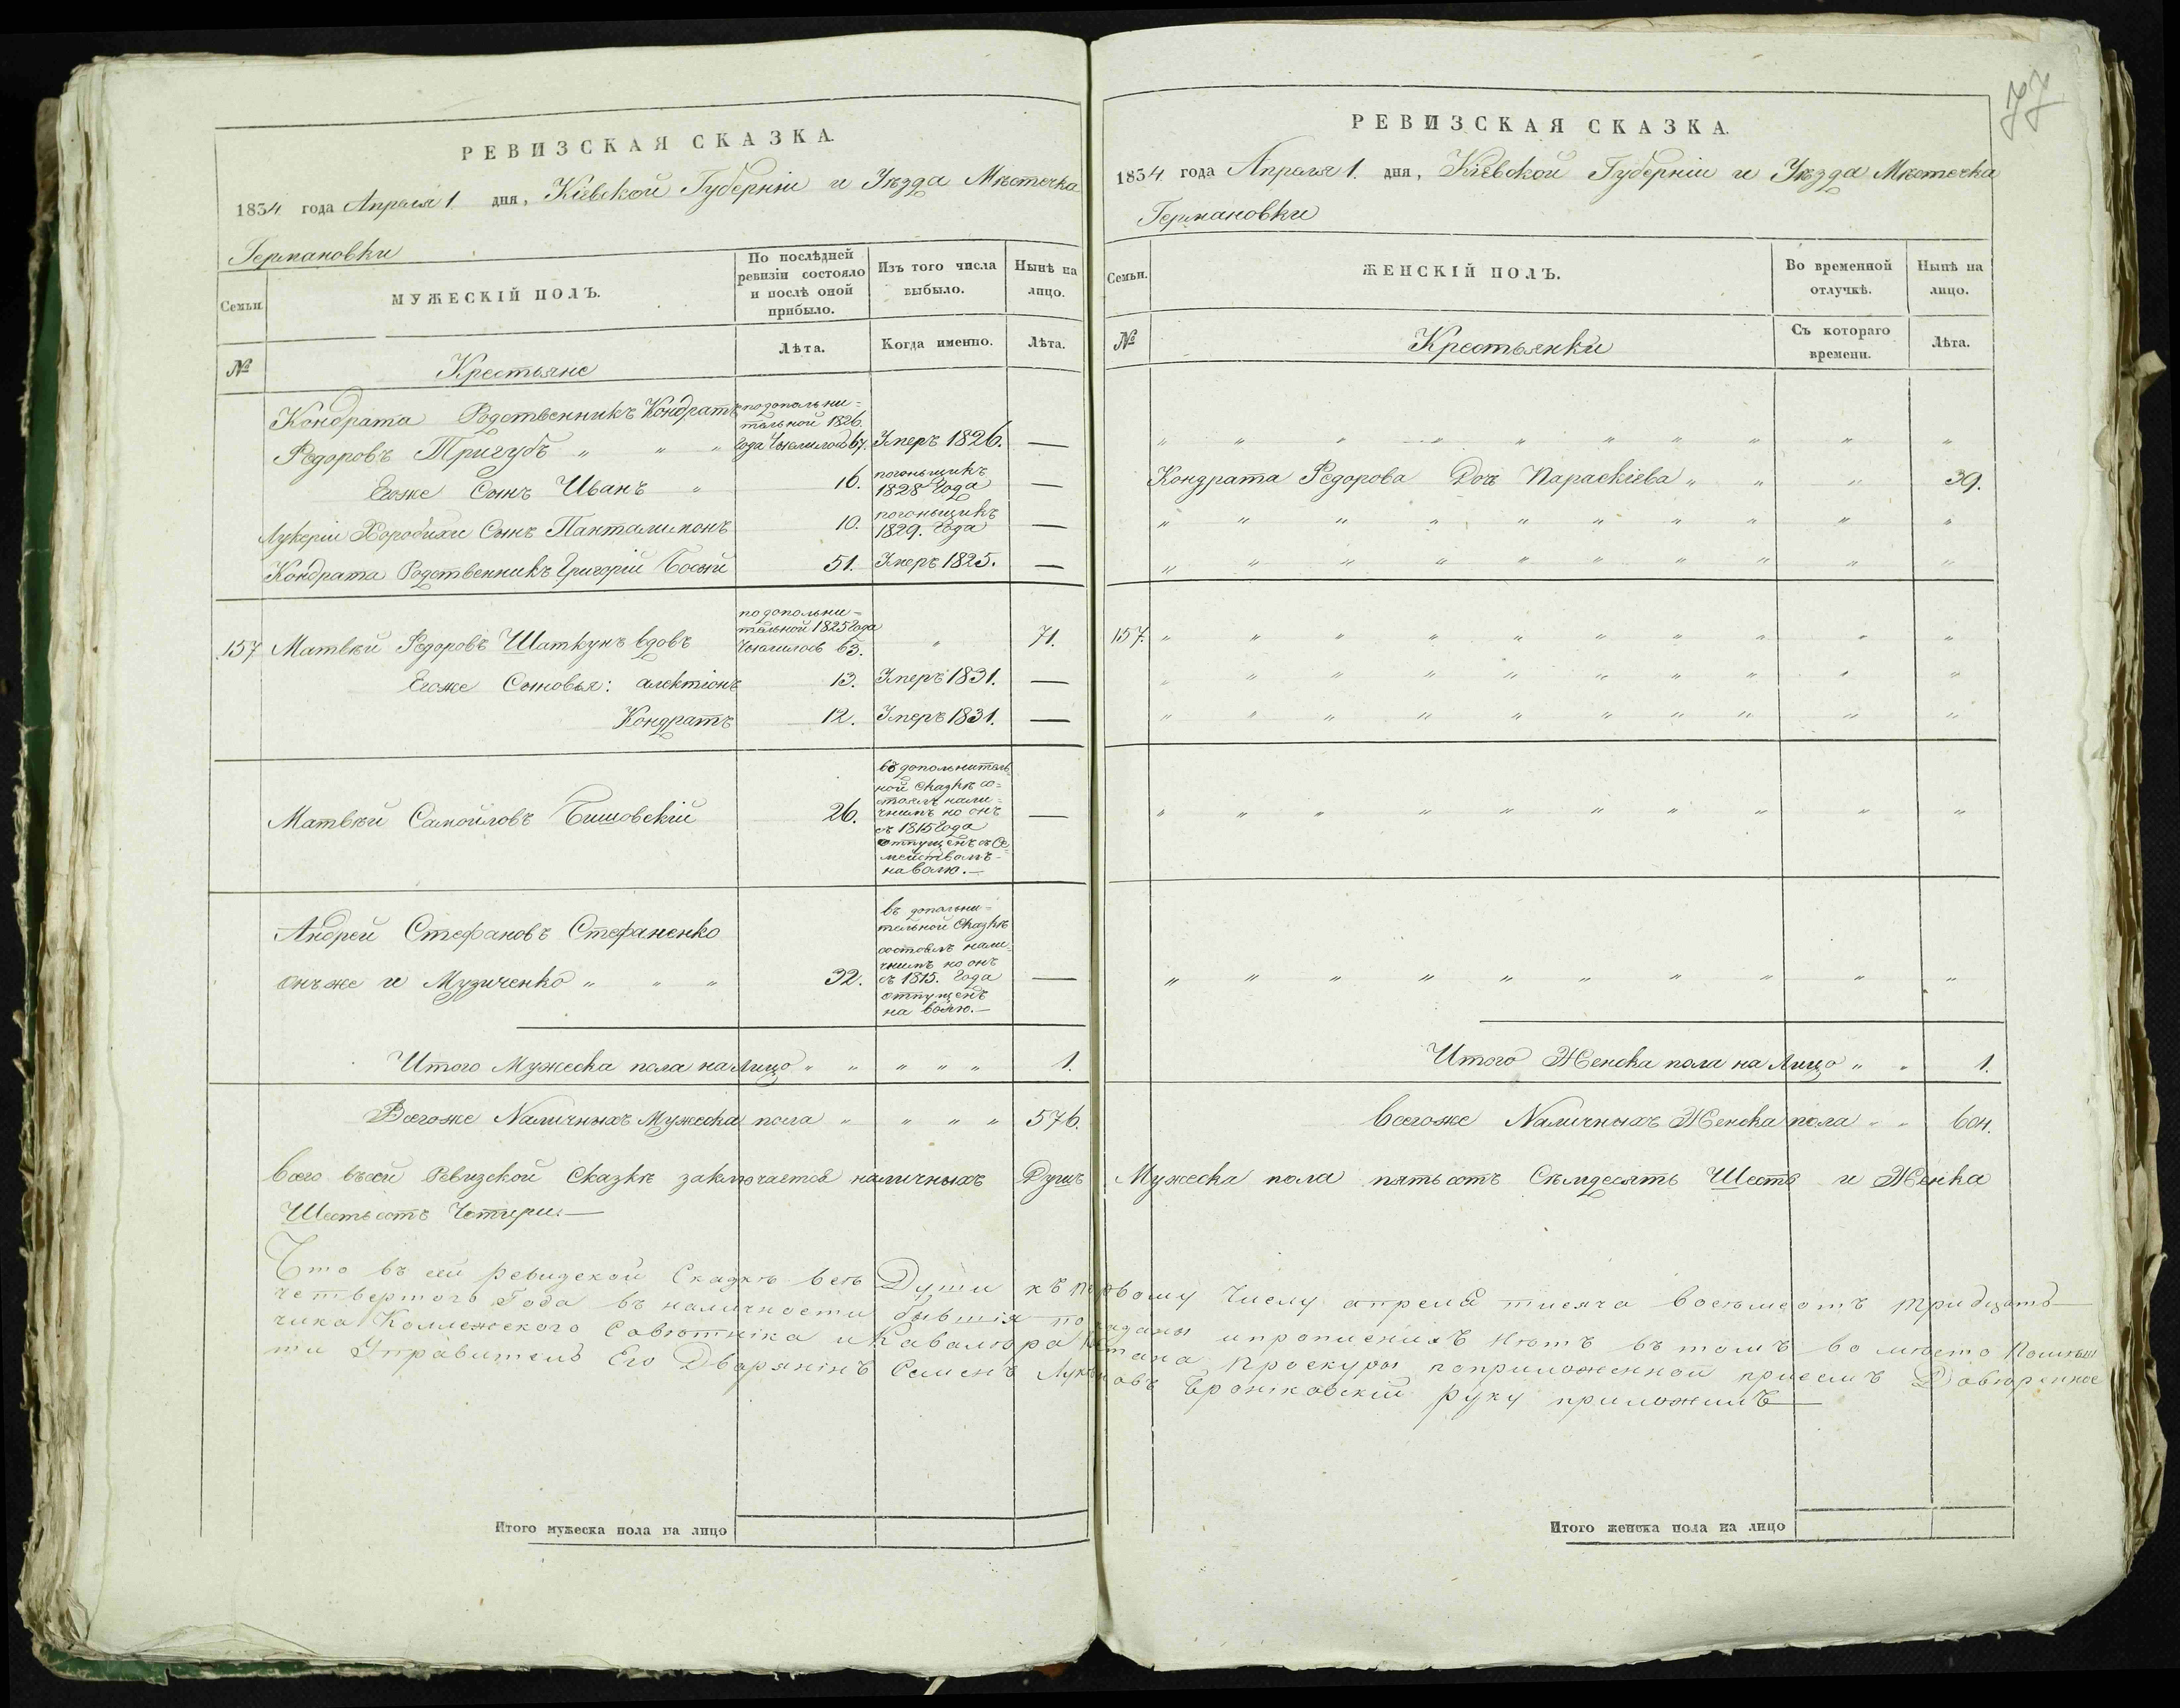 РЕВИЗСКАЯ СКАЗКА.
1834 года Апреля 1. дня, Кіевской Губерніи и Уѣзда Мѣстечка
Германовки
Семьи.
МУЖЕСКІЙ ПОЛЪ.
По послѣдней ревизіи состояло и послѣ оной прибыло.
Изъ того числа выбыло.
Нынѣ на лицо.
№
Крестьяне
Лѣта.
Когда именно.
Лѣта.
Кондрата Родственникъ Кондратъ подополни=
тельной 1826.
Федоровъ Тригубъ " " " Года Числилось 67. Умеръ 1826. —
Егоже Сынъ Иванъ " 16. погоньщикъ
1828 Года —
Лукеріи Хоробихи Сынъ Панталимонъ 10. погоньщикъ
1829. Года —
Кондрата Родственникъ Григорій Босый 51. Умеръ 1825. —
подополни=
тельной 1825 Года
157 Матвѣй Федоровъ Шаткунъ вдовъ Числилось 63. " 71.
Егоже Сыновья: алектіонъ 13. Умеръ 1831. —
Кондратъ 12. Умеръ 1831. —
въ дополнитель
ной Сказкѣ со=
стоялъ нали=
Матвѣй Самойловъ Бишовскій 26. чнымъ но онъ —
съ 1815 Года
отпущенъ съ Се
мействомъ
на волю.—
въ дополни=
Андрей Стефановъ Стефаненко тельной Сказкѣ
состоялъ нали=
чнымъ но онъ
онъже и Музиченко " " " 32. съ 1815. Года —
отпущенъ
на волю.—
Итого Мужеска пола на Лицо " " " " " 1.
Всегоже Наличныхъ Мужеска пола " " " " 576.
Всего въсей Ревизской Сказкѣ заключается наличныхъ Душъ
Шестьсотъ Четыри.—
Итого мужеска пола на лицо
77
РЕВИЗСКАЯ СКАЗКА.
1834 года Апреля 1. дня, Кіевской Губерніи и Уѣзда Мѣстечка
Германовки
Семьи.
ЖЕНСКІЙ ПОЛЪ.
Во временной отлучкѣ.
Нынѣ на лицо.
№
Крестьянки
Съ котораго времени.
Лѣта.
" " " " " " " " " "
Кондрата Федорова Дочь Параскіева " " " 39.
" " " " " " " " " "
" " " " " " " " " "
157. " " " " " " " " " "
" " " " " " " " " "
" " " " " " " " " "
" " " " " " " " " "
" " " " " " " " " "
Итого Женска пола на Лицо " " 1.
Всегоже Наличныхъ Женска пола " " 604.
Мужеска пола пятьсотъ Семдесятъ Шесть и Женска
Что въ сей ревизской Сказкѣ всѣ Души къ первому Числу апреля тисяча восемсотъ тридцать
четвертого Года въ наличности бывшія показаны ипрописнихъ нѣтъ въ томъ во мѣсто Помѣщ
чика Коллежского Совѣтника иКавалѣра Проскуры поприложенной присемъ Довѣренно
ти Управитель Его Дварянинъ Семенъ Броніковскій руку приложилъ
Итого женска пола на лицо